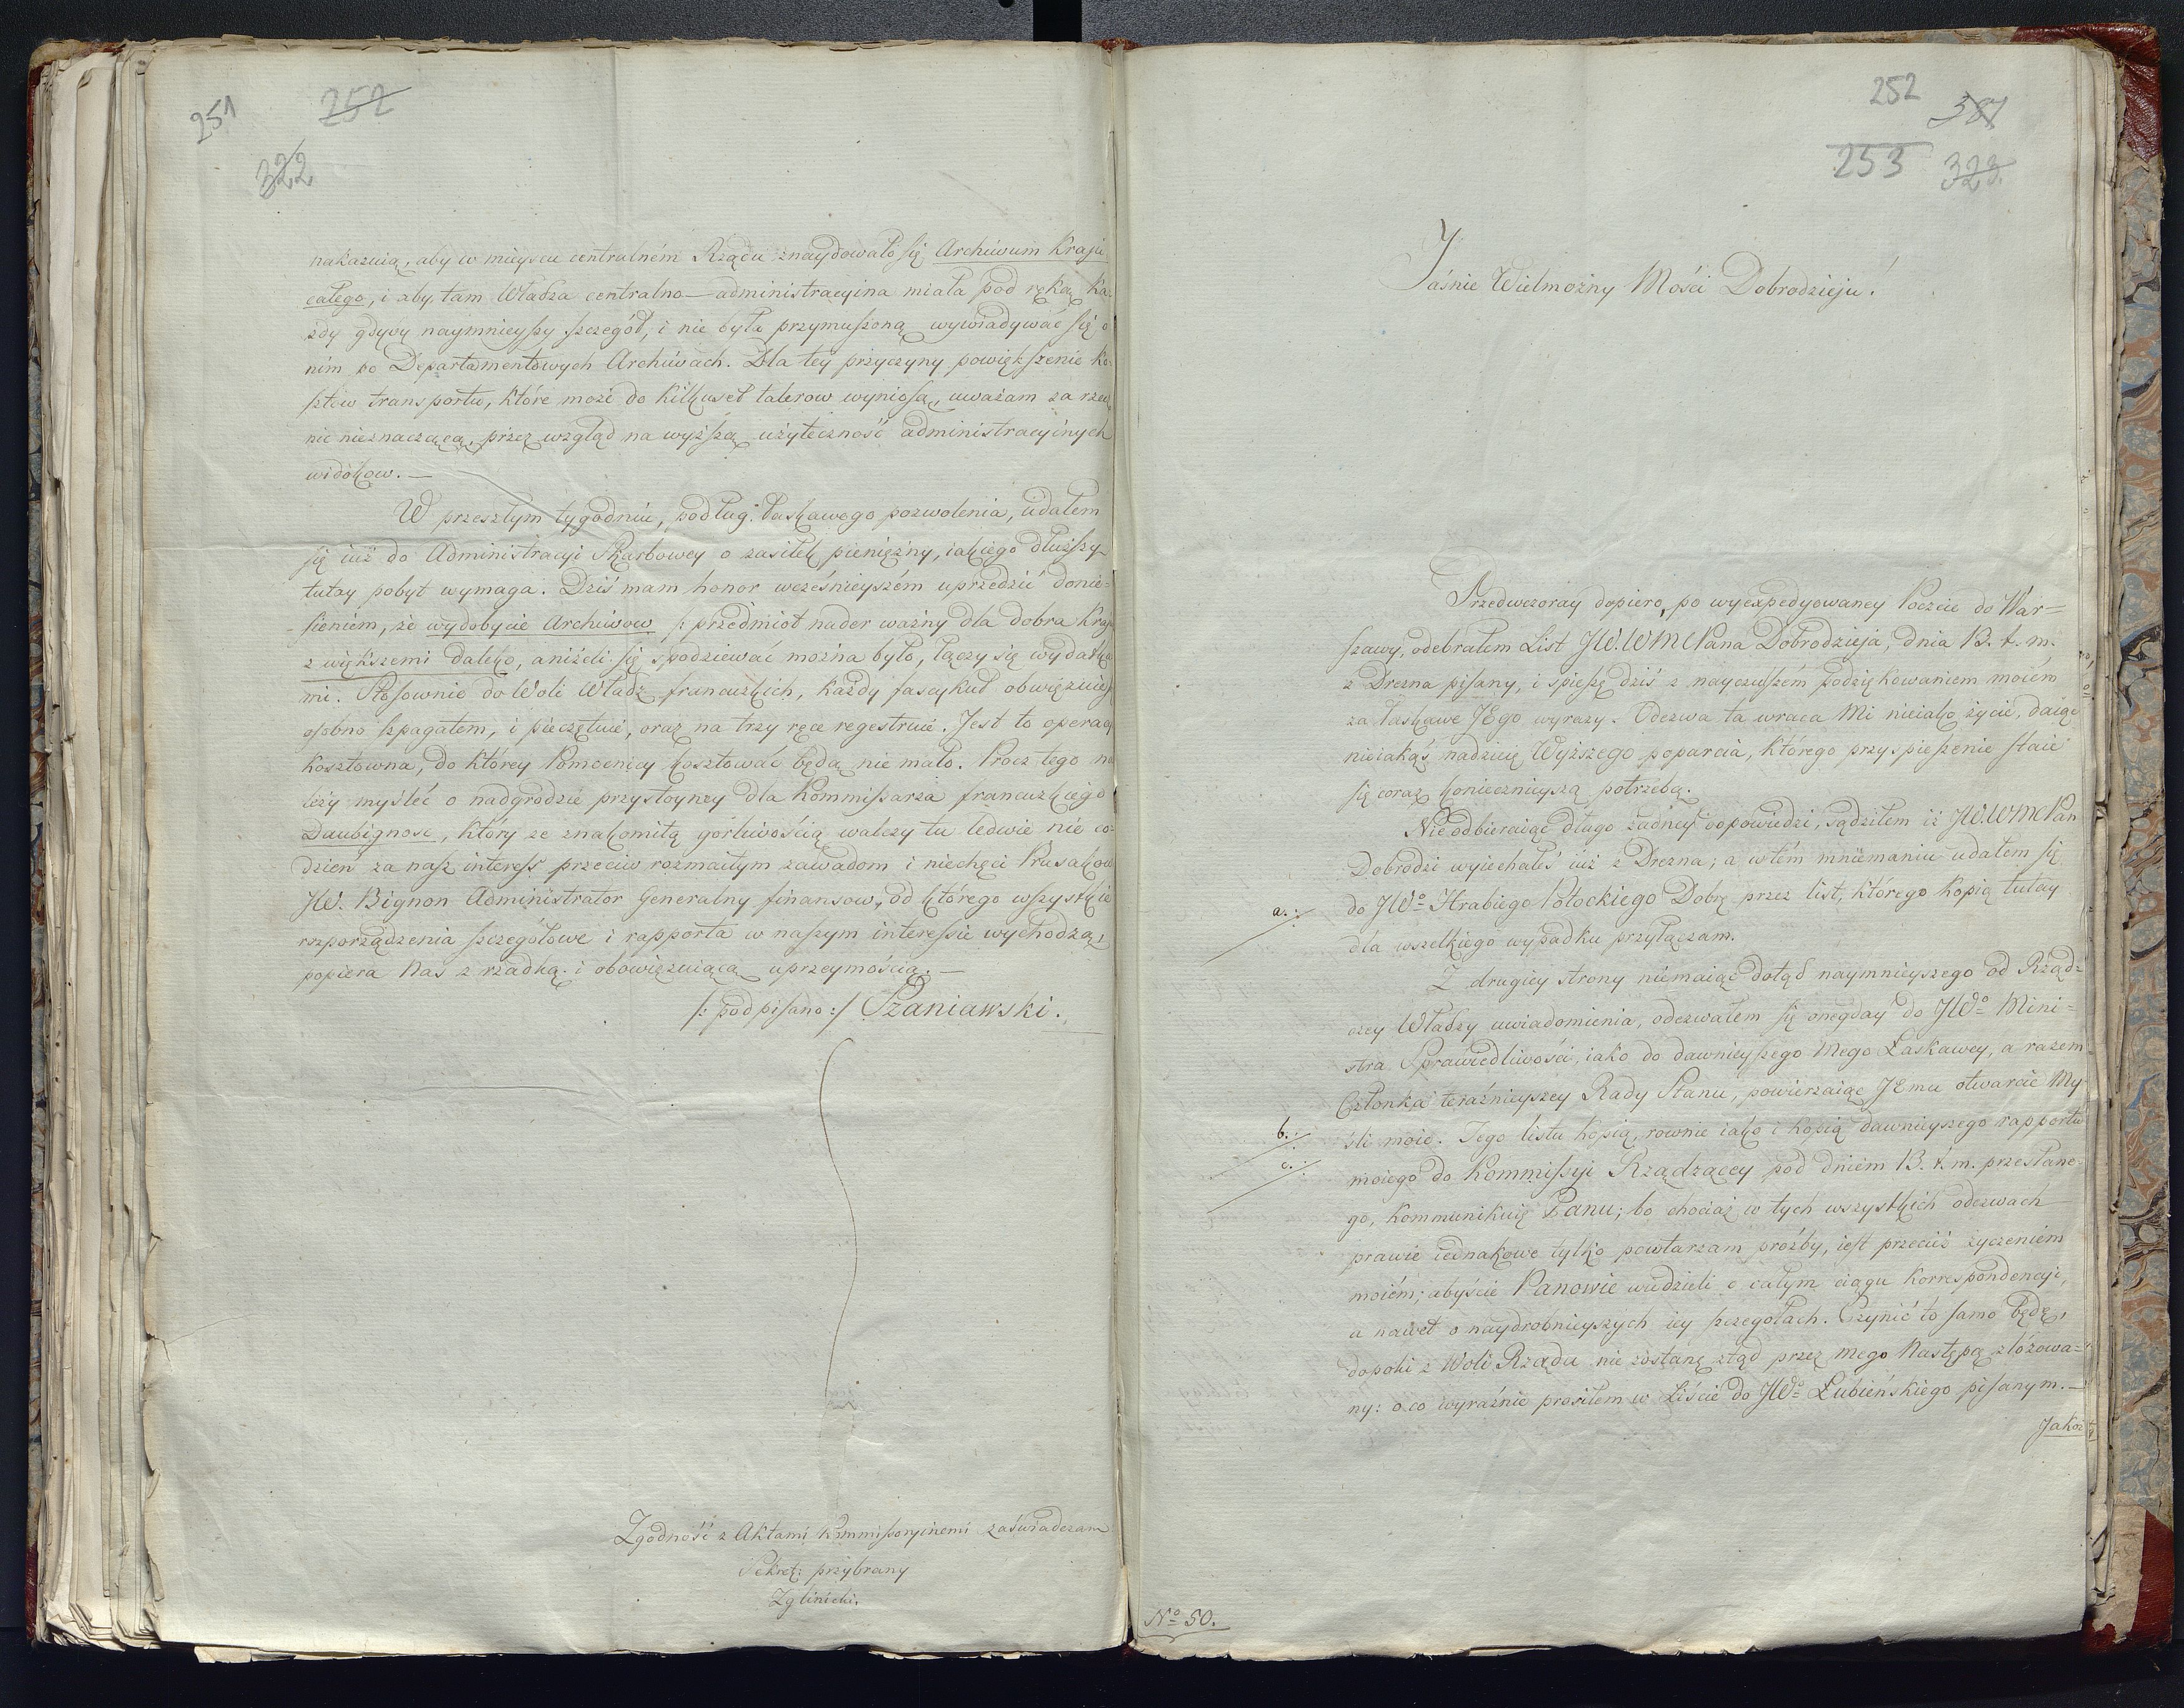 251 252
322
nakazuią, aby w mieyscu centralném Rządu znaydowało się Archiwum Kraju
całego, i aby tam Władza centralno-administracyina miała pod ręką ka-
żdy gdyby naymnieyszy szczegół, i nie była przymuszoną wywiadywać się o
nim po Departamentowych Archiwach. Dla tey przyczyny powiększenie ko-
sztów transportu, które może do kilkuset talerow wyniosą, uważam za rzecz
nic nieznaczącą, przez wzgląd na wyższą użyteczność administracyinych
widokow. —
W przeszłym tygodniu, podług łaskawego pozwolenia, udałem
się iuż do Administracyi Skarbowey o zasiłek pieniężny, iakiego dłuższy
tutay pobyt wymaga. Dziś mam honor wcześnieyszém uprzedzić donie-
sieniem, że wydobycie Archiwow /: przedmiot nader ważny dla dobra Kraju
z większemi daleko, aniżeli się spodziewać można było, łączy się wydatka
mi. Stosownie do Woli Władz francuzkich, każdy fascykuł obwięzuie
osobno szpagatem, i pieczętuie, oraz na trzy ręce regestruie. Jest to operacya
kosztowna, do którey Pomocnicy kosztować będą nie mało. Procz tego na
leży myśleć o nadgrodzie przystoyney dla Kommissarza francuzkiego
Daubignosc, który ze znakomitą gorliwością walczy tu ledwie nie co-
dzień za nasz interess przeciw rozmaitym zawadom i niechęci Prusakow
JW. Bignon Administrator Generalny finansow, od którego wszystkie
rozporządzenia szczegółowe i rapporta w naszym interessie wychodzą,
popiera Nas z rzadką i obowięzuiącą uprzeymością. —
/: podpisano :/ Szaniawski.
Zgodność z Aktami Kommissoryinemi zaświadczam
Sekret: przybrany
Zglinicki.
252 387
253 323.
Jaśnie Wielmożny Mości Dobrodzieju!
Przedwczoray dopiero, po wyexpedyowaney Poczcie do War=
szawy, odebrałem List JW. WMC Pana Dobrodzieja, dnia 13. t. m.
z Drezna pisany, i spieszę dziś z nayczulszém podziękowaniem moiém
za łaskawe JEgo wyrazy. Odezwa ta wraca Mi nieiako życie, daiąc
nieiakąś nadzieię Wyższego poparcia, którego przyspieszenie staie
się coraz koniecznieyszą potrzebą.
Nie odbieraiąc długo żadney odpowiedzi, sądziłem iż JW. WMC Pan
Dobrodzi wyiechałeś iuż z Drezna; a w tém mniemaniu udałem się
a.: do JWo Hrabiego Potockiego Dobrz przez list, którego kopią tutay
dla wszelkiego wypadku przyłączam.
Z drugiey strony niemaiąc dotąd naymnieyszego od Rząd-
czey Władzy uwiadomienia, odezwałem się onegday do JWo Mini=
stra Sprawiedliwości, iako do dawnieyszego Mego Łaskawcy, a razem
Członka teraźnieyszey Rady Stanu, powierzaiąc JEmu otwarcie My-
b.: śli moie. Tego listu kopią, rownie iako i kopią dawnieyszego rapportu
c.: moiego do Kommissyi Rządzącey pod dniem 13. t. m. przesłane-
go, kommunikuię Panu; bo chociaż w tych wszystkich odezwach
prawie iednakowe tylko powtarzam prośby, iest przecież życzeniém
moiém; abyście Panowie wiedzieli o całym ciągu korrespondencyi,
a nawet o naydrobnieyszych iey szczegołach. Czynić to samo będę,
dopoki z Woli Rządu nie zostanę ztąd przez mego Następcę zlózowa=
ny: o co wyraźnie prosiłem w Liście do JWo Łubieńskiego pisanym. —
Jakoż
No 50.